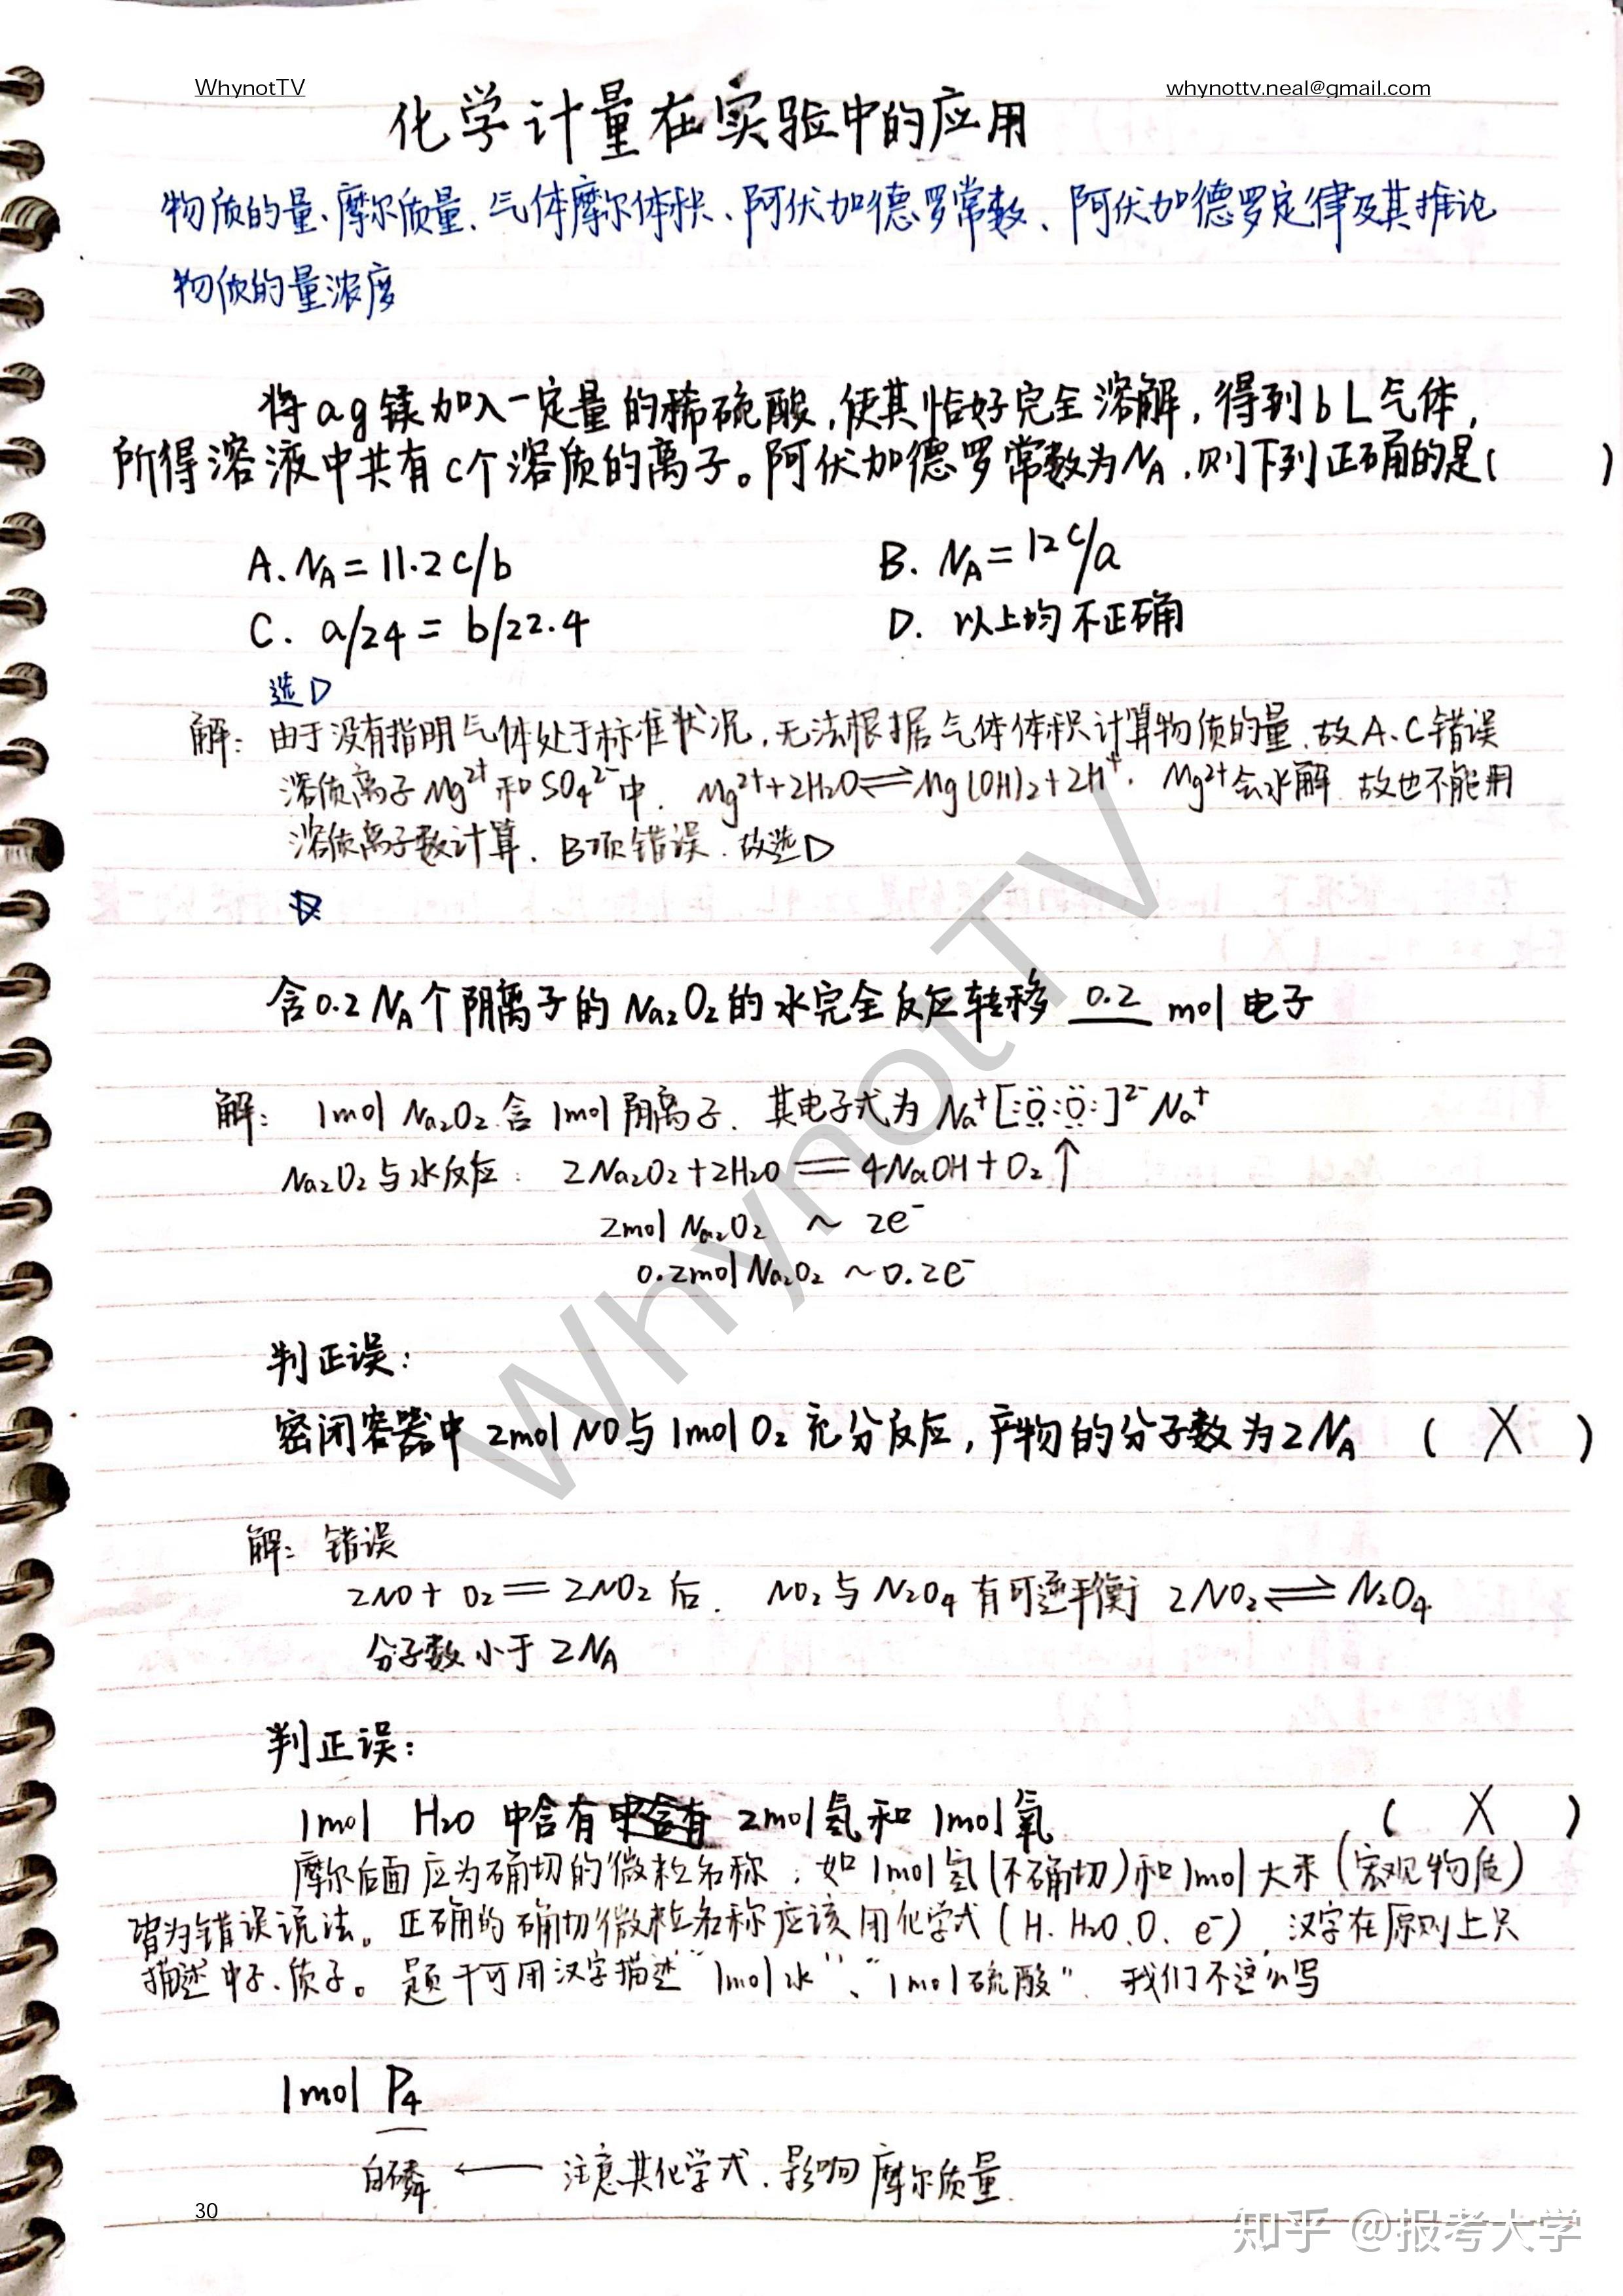 WhynotTV
whynottv.neal@gmail.com
化学计量在实验中的应用
物质的量、摩尔质量、气体摩尔体积、阿伏加德罗常数、阿伏加德罗定律及其推论
物质的量浓度
将ag镁加入一定量的稀硫酸,使其恰好完全溶解,得到bL气体,
所得溶液中共有c个溶质的离子。阿伏加德罗常数为NA,则下列正确的是( )
A. NA=11.2c/b
B. NA=12c/a
C. a/24=b/22.4
D. 以上均不正确
选D
解: 由于没有指明气体处于标准状况,无法根据气体体积计算物质的量,故A、C错误
溶质离子Mg²⁺和SO₄²⁻中, Mg²⁺+2H₂O⇌Mg(OH)₂+2H⁺, Mg²⁺会水解 故也不能用
溶质离子数计算, B项错误, 故选D
含0.2NA个阴离子的Na₂O₂的水完全反应转移 0.2 mol电子
解: 1mol Na₂O₂含1mol阴离子, 其电子式为 Na⁺[:Ö:Ö:]²⁻Na⁺
Na₂O₂与水反应: 2Na₂O₂+2H₂O═4NaOH+O₂↑
2mol Na₂O₂ ~ 2e⁻
0.2mol Na₂O₂ ~0.2e⁻
判正误:
密闭容器中2molNO与1molO₂充分反应,产物的分子数为2NA ( X )
解: 错误
2NO+O₂═2NO₂后, NO₂与N₂O₄有可逆平衡 2NO₂⇌N₂O₄
分子数小于2NA
判正误:
1mol H₂O中含有 2mol氢和1mol氧 ( X )
摩尔后面应为确切的微粒名称, 如1mol氢(不确切)和1mol大米(宏观物质)
皆为错误说法。正确的确切微粒名称应该用化学式(H、H₂O、O、e⁻), 汉字在原则上只
描述中子、质子。题干可用汉字描述"1mol水"、"1mol硫酸", 我们不这么写
1mol P₄
白磷 ← 注意其化学式,影响摩尔质量
30
知乎 @报考大学
WhynotTV